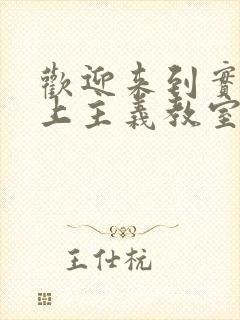 歡迎来到實
上主義教室
王仕杭